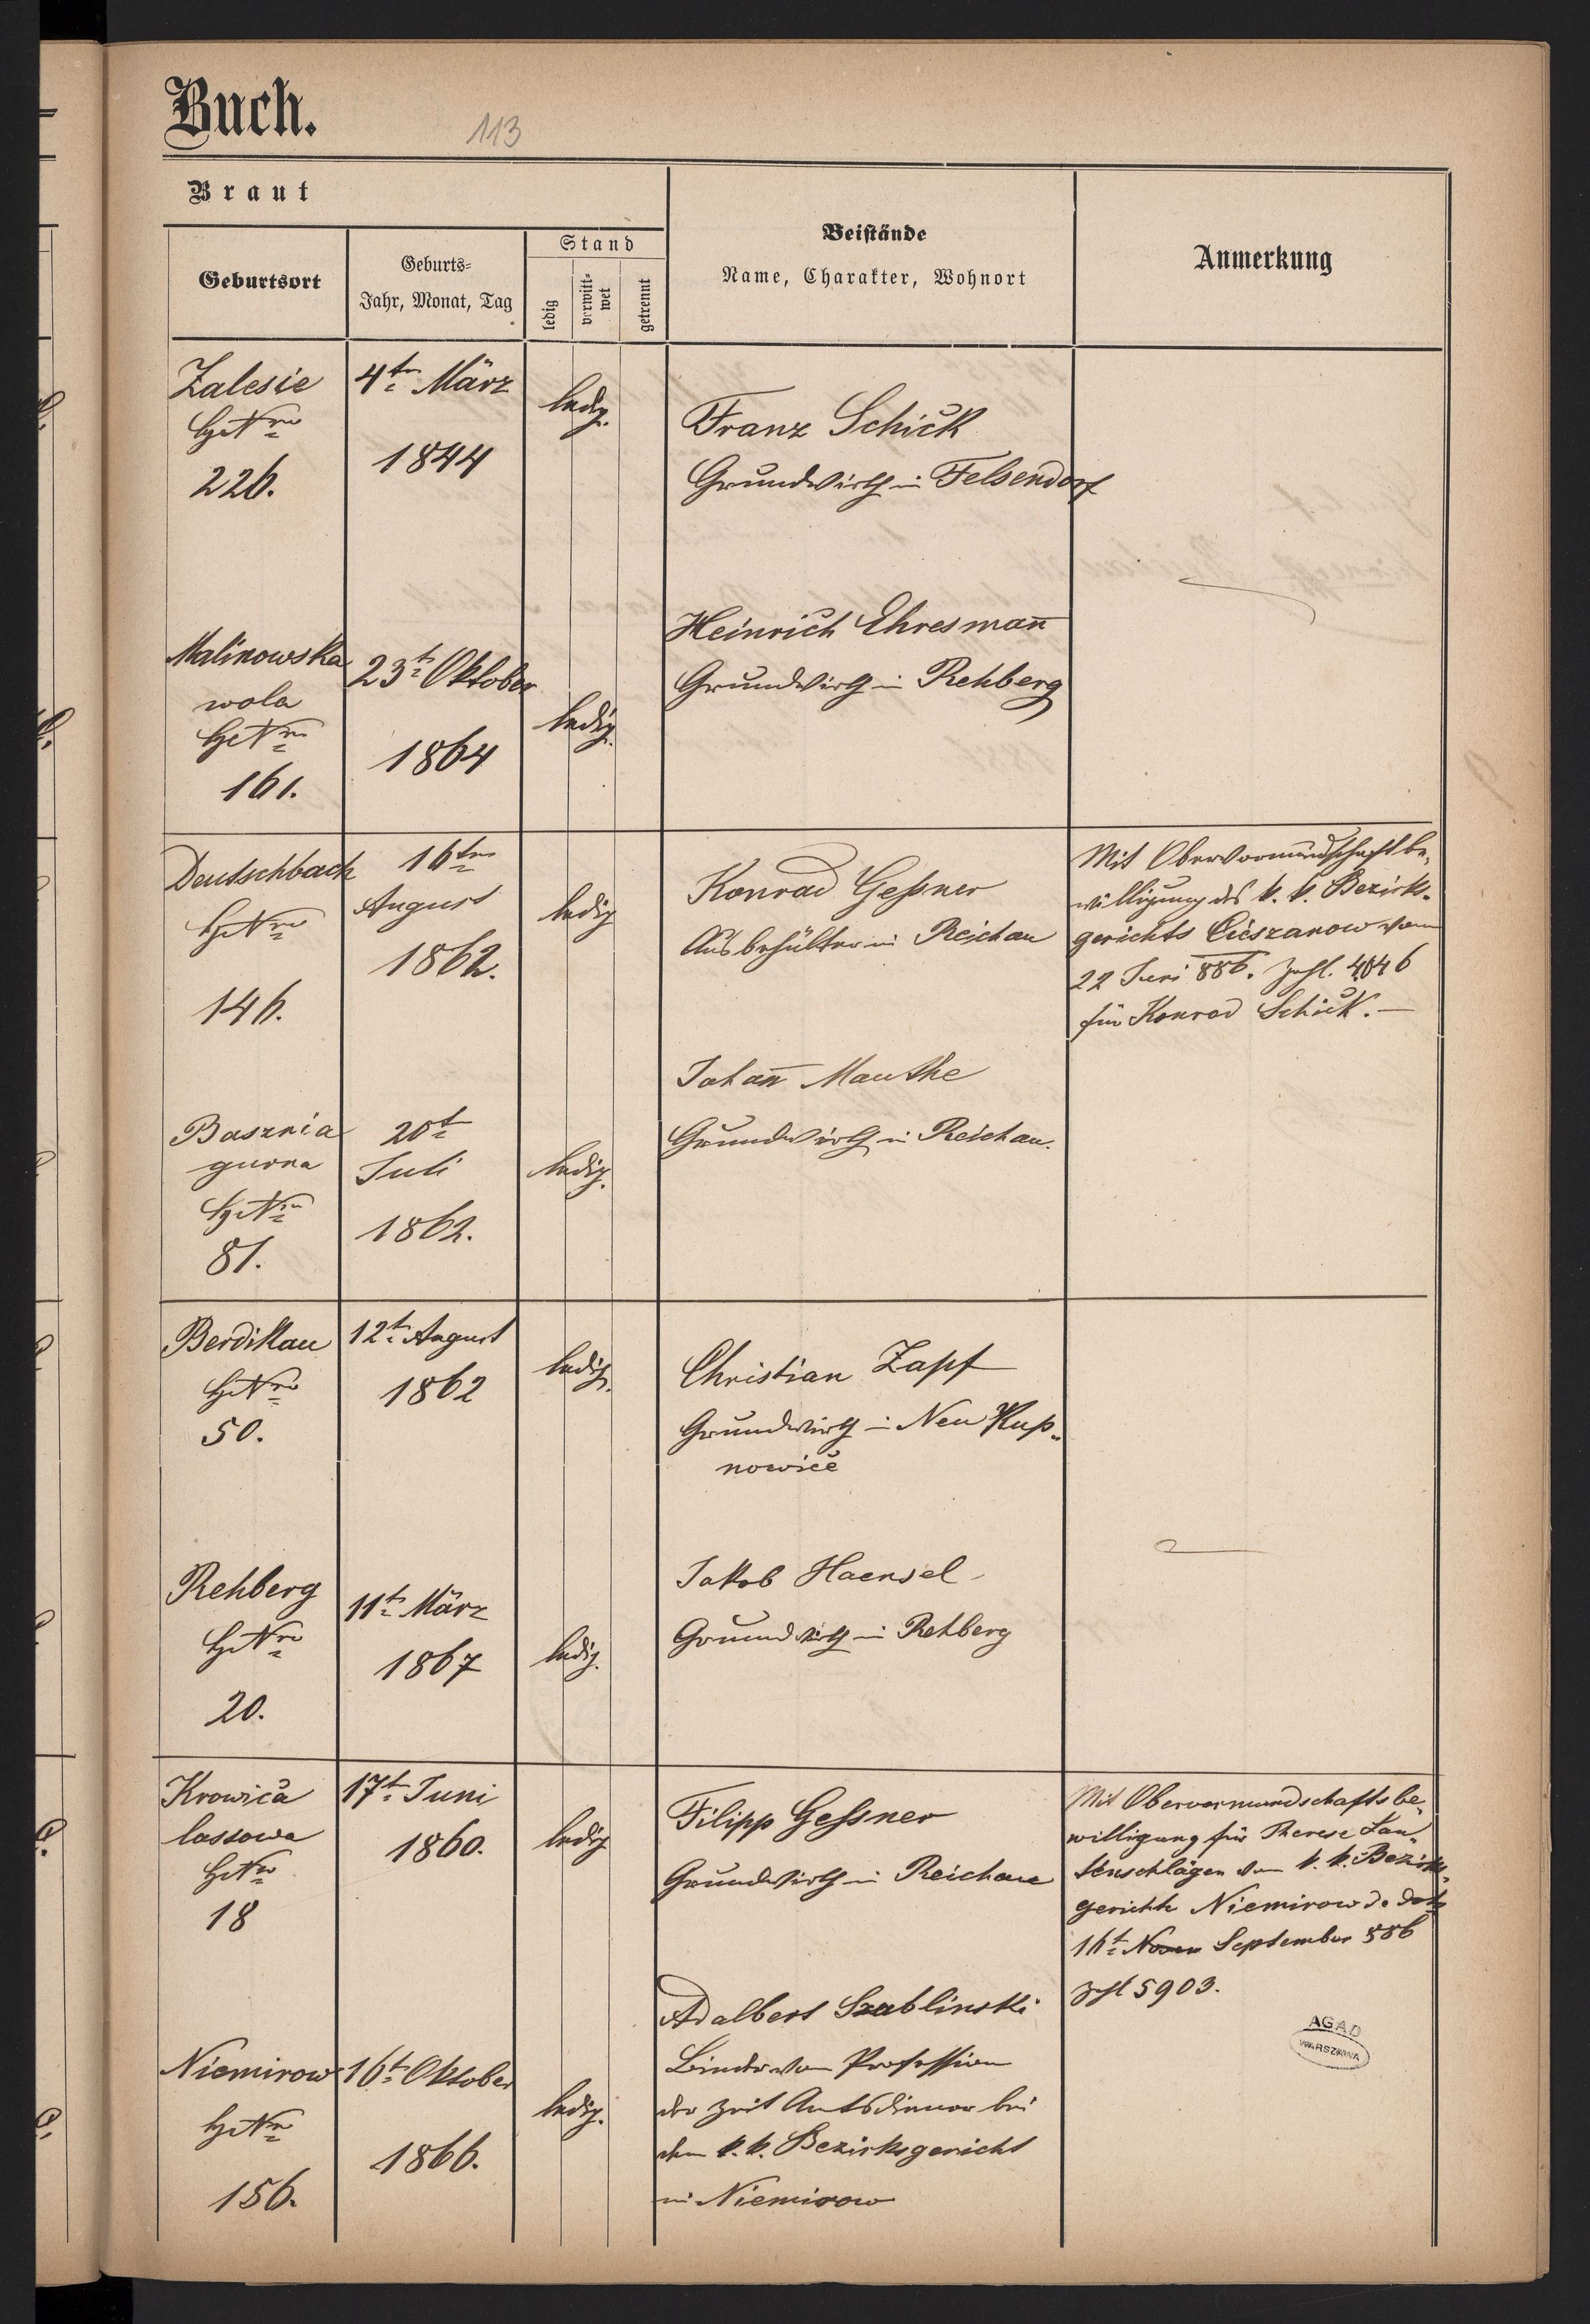 Buch.
113
Braut
Geburtsort
Geburts=
Jahr, Monat, Tag
Stand
ledig
verwitt=
wet
getrennt
Beistände
Name, Charakter, Wohnort
Anmerkung
Zalesie
HsNro
226.
4ten März
1844
ledig.
Franz Schick
Grundwirth in Felsendorf
Malinowska
wola
HsNro
161.
23t Oktober
1864
ledig.
Heinrich Ehresman̄
Grundwirth in Rehberg
Deutschbach
HsNro
146.
16ten
August
1862.
ledig
Konrad Geßner
Ausbehälter in Reichau
Mit Obervormundschaftbe-
willigung des k. k. Bezirks-
gerichts Cieszanow vom
22 Juni 886. Zahl. 4046
für Konrad Schick.—
Basznia
gurna
HsNro
81.
20t
Juli
1862.
ledig.
Johan̄ Mauthe
Grundwirth in Reichau.
Berdikau
HsNro
50.
12t August
1862
ledig.
Christian Zapf
Grundwirth in Neu Kup-
nowice
Rehberg
HsNro
20.
11t März
1867
ledig.
Jakob Haensel
Grundwirth in Rehberg
Krowica
lassowa
HsNro
18
17t Juni
1860.
ledig
Filipp Geßner
Grundwirth in Reichau
Mit Obervormundschaftsbe-
willigung für Therese Lau-
tenschläger vom k. k. Bezirks-
gericht Niemirow de dato
16t Novem September 886
Zahl 5903.
Niemirow
HsNro
156.
16t Oktober
1866.
ledig.
Adalbert Szablinski
Binder von Profession
der Zeit Amtsdiener bei
dem k. k. Bezirksgericht
in Niemirow
AGAD
WARSZAWA